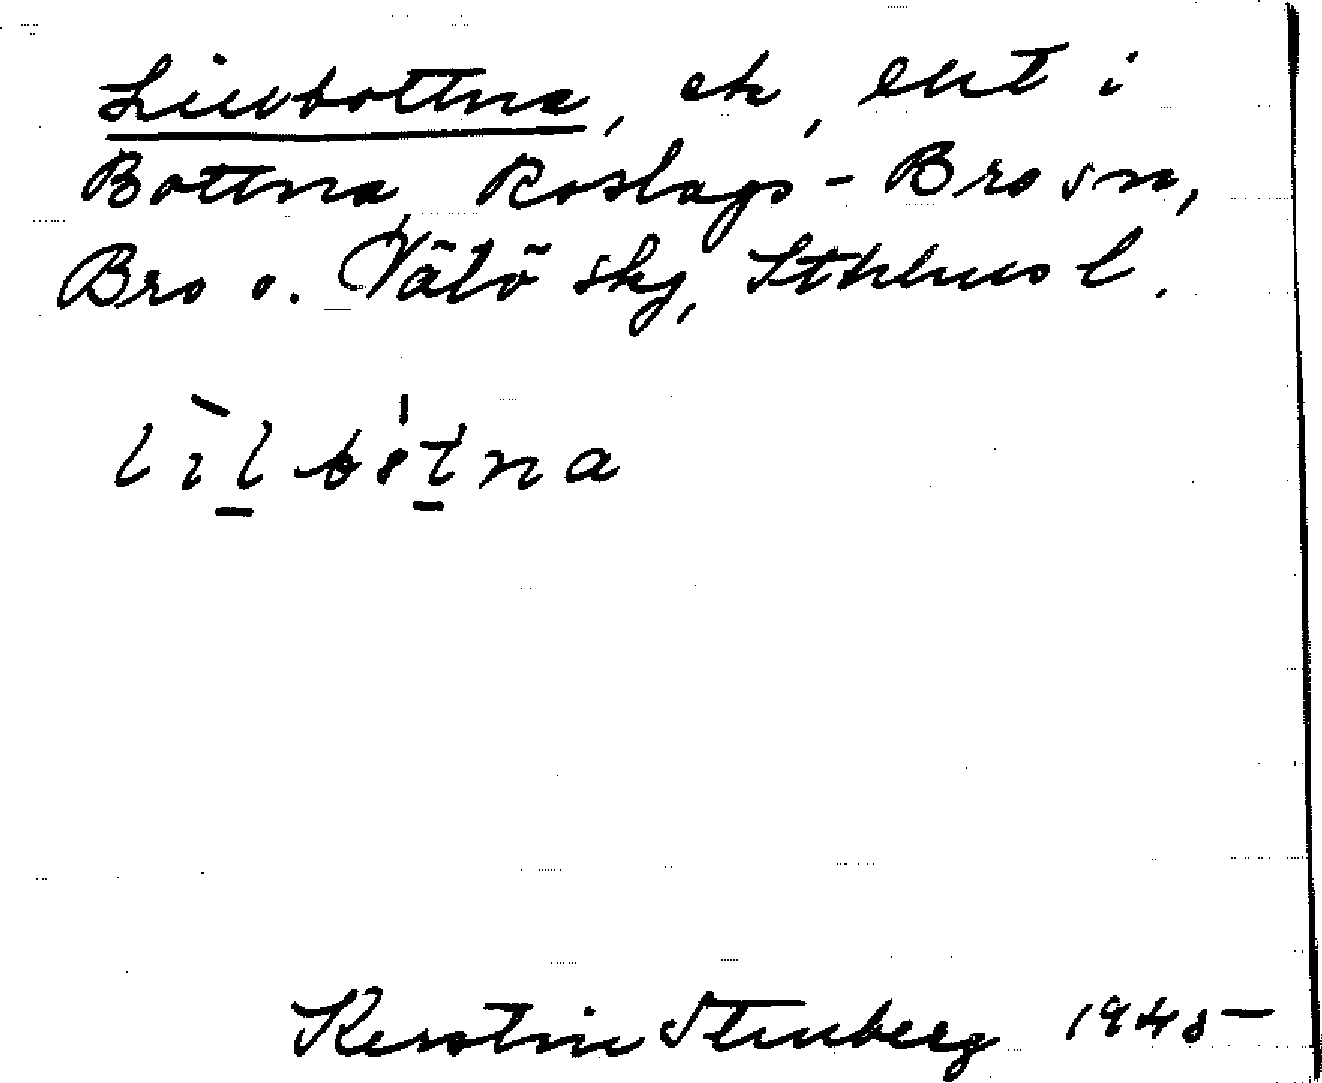 Lillbottna, ek, ent i
Bottna Roslags-Bro sn,
Bro o. Vätö skg, Sthlms l.
lìlbòtna
Kerstin Stenberg 1945